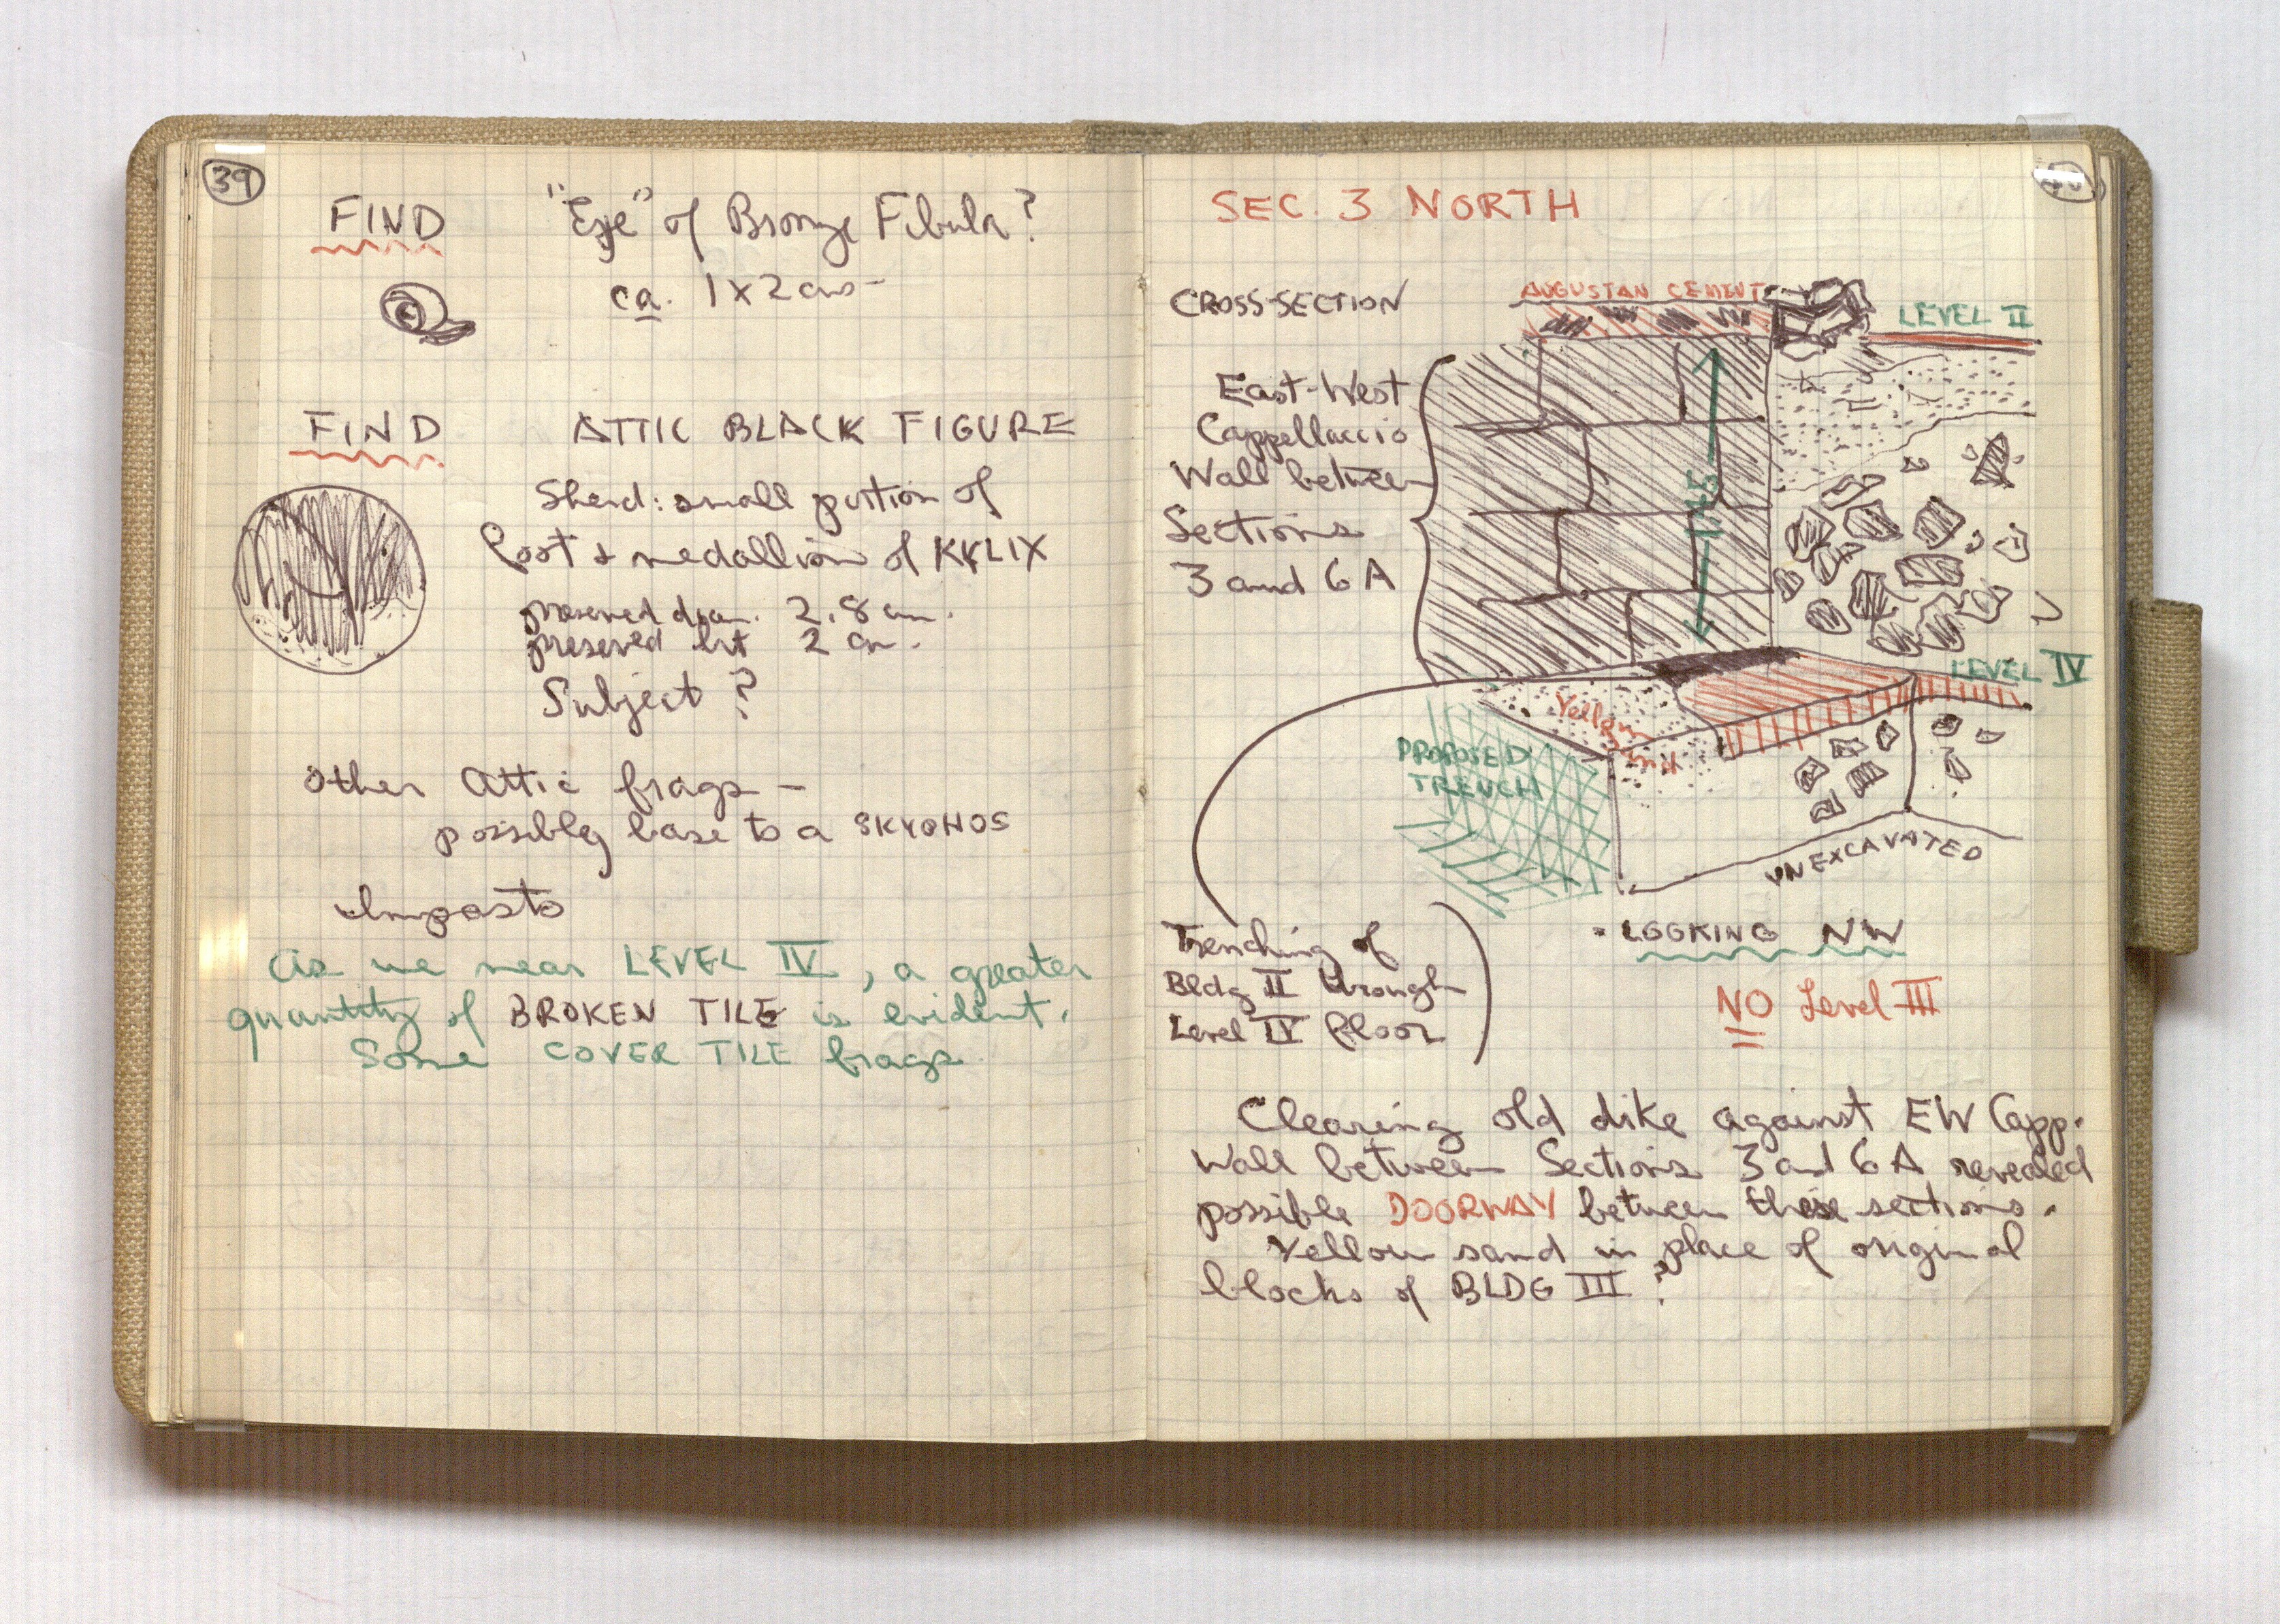 39
FIND "Eye" of Bronze Fibula?
ca. 1 x 2 cms-
FIND ATTIC BLACK FIGURE
Sherd: small portion of
foot & medallion of KYLIX
preserved diam. 2.8 cm.
preserved ht 2 cm.
Subject?
Other Attic frags -
possibly base to a SKYPHOS
Impasto
As we near LEVEL IV, a greater
quantity of BROKEN TILE is evident.
Some COVER TILE frags
40
SEC. 3 NORTH
CROSS-SECTION
AUGUSTAN CEMENT
LEVEL II
East-West
Cappellaccio
Wall between
Sections
3 and 6A
LEVEL IV
Yellow
sand
PROPOSED
TRENCH
UNEXCAVATED
Trenching of
Bldg II through
Level IV floor
LOOKING NW
NO Level III
Clearing old dike against EW Capp.
Wall between Sections 3 and 6A revealed
possible DOORWAY between these sections.
Yellow sand in place of original
blocks of BLDG III?